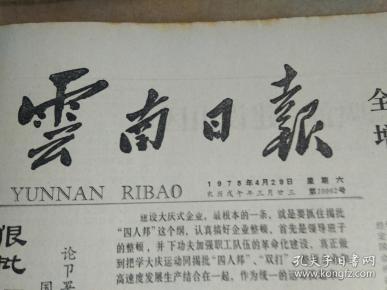 雲南日報
YUNNAN RIBAO
1978年4月29日 星期六
农历戊午年三月廿三
建设大庆式企业，最根本的一条，就是要抓住揭批
“四人帮”这个纲，认真搞好企业整顿，首先是领导班子
的整顿，并下功夫加强职工队伍的革命化建设，真正做
到把学大庆运动同揭批“四人帮”、“双打”
高速度发展生产结合在一起，作为统一的
狠批
论卫
国
全
孔夫子旧书网